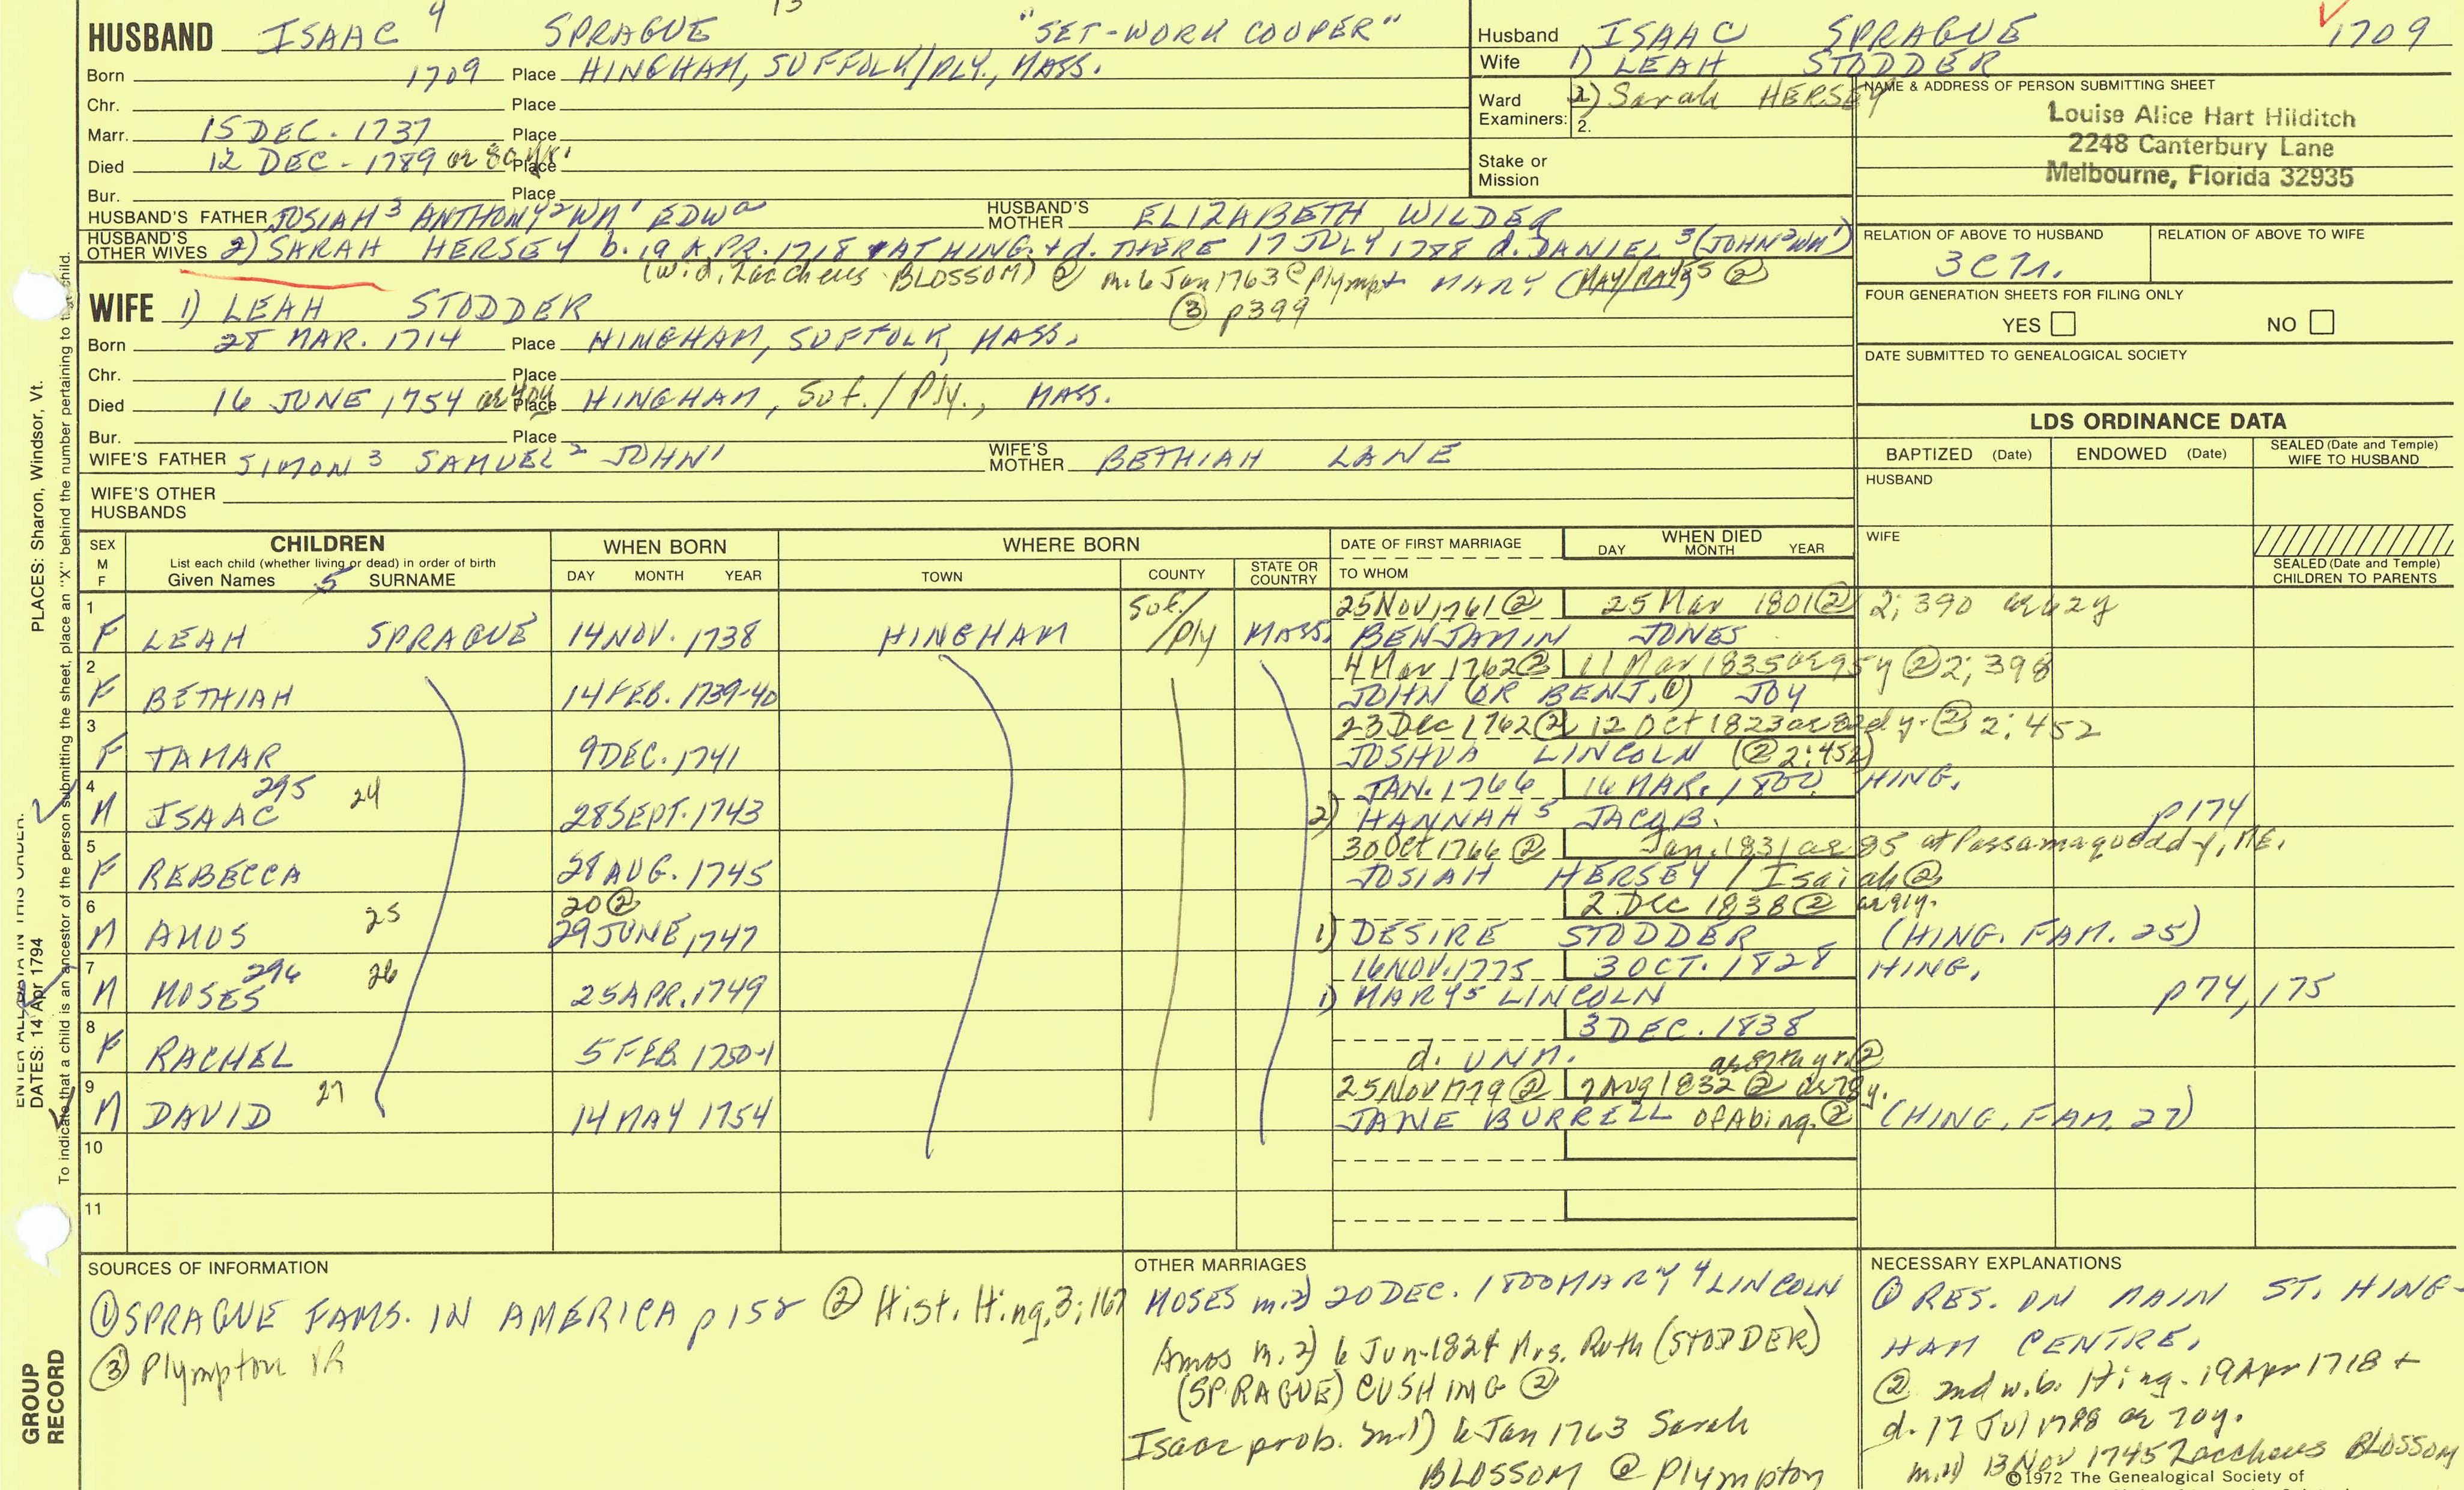 HUSBAND ISAAC 4 SPRAGUE "SET-WORK COOPER"
Born 1709 Place HINGHAM, SUFFOLK/PLY., MASS.
Chr. Place
Marr. 15 DEC. 1737 Place
Died 12 DEC - 1789 ae 80 yr. Place
Bur. Place
HUSBAND'S FATHER JOSIAH 3 ANTHONY 2 WM 1 EDWa
HUSBAND'S MOTHER ELIZABETH WILDER
HUSBAND'S OTHER WIVES 2) SARAH HERSEY b. 19 APR. 1718 AT HING. + d. THERE 17 JULY 1788 d. DANIEL 3 (JOHN 2 WM 1)
(wid. Zaccheus BLOSSOM) @ m. 6 Jan 1763 @ Plympt MARY (MAY/RAY)
③ p399
WIFE 1) LEAH STODDER
Born 28 MAR. 1714 Place HINGHAM, SUFFOLK, MASS.
Chr. Place
Died 16 JUNE 1754 ae 40y Place HINGHAM, Suf./Ply., MASS.
Bur. Place
WIFE'S FATHER SIMON 3 SAMUEL 2 JOHN 1
WIFE'S MOTHER BETHIAH LANE
WIFE'S OTHER HUSBANDS
Husband ISAAC SPRAGUE 1709
Wife 1) LEAH STODDER
Ward Examiners: 2) Sarah HERSEY
2.
Stake or Mission
NAME & ADDRESS OF PERSON SUBMITTING SHEET
Louise Alice Hart Hilditch
2248 Canterbury Lane
Melbourne, Florida 32935
RELATION OF ABOVE TO HUSBAND RELATION OF ABOVE TO WIFE
FOUR GENERATION SHEETS FOR FILING ONLY
YES NO
DATE SUBMITTED TO GENEALOGICAL SOCIETY
LDS ORDINANCE DATA
BAPTIZED (Date) ENDOWED (Date) SEALED (Date and Temple) WIFE TO HUSBAND
HUSBAND
WIFE
SEALED (Date and Temple) CHILDREN TO PARENTS
SEX M F
CHILDREN
List each child (whether living or dead) in order of birth
Given Names 5 SURNAME
WHEN BORN
DAY MONTH YEAR
WHERE BORN
TOWN COUNTY STATE OR COUNTRY
DATE OF FIRST MARRIAGE
TO WHOM
WHEN DIED
DAY MONTH YEAR
1 Suf./Ply 25 NOV 1761 ② 25 Mar 1801 ② 2; 390 ae 62y
F LEAH SPRAGUE 14 NOV. 1738 HINGHAM MASS. BENJAMIN JONES
2 4 Mar 1762 ② 11 Mar 1835 ae 95y ② 2; 398
F BETHIAH 14 FEB. 1739-40 JOHN (OR BENJ. ①) JOY
3 23 Dec 1762 ② 12 Oct 1823 ae 82d y. ② 2: 452
F TAMAR 9 DEC. 1741 JOSHUA LINCOLN (② 2:452)
4 295 24 JAN. 1766 16 MAR. 1800 HING.
M ISAAC 28 SEPT. 1743 2) HANNAH 5 JACOB. p174
5 30 Oct 1766 ② Jan. 1831 ae 85 at Passamaquoddy, ME.
F REBECCA 28 AUG. 1745 JOSIAH HERSEY / Isaiah ②
6 25 20 ② 2 Dec 1838 ② ae 91y.
M AMOS 29 JUNE, 1747 1) DESIRE STODDER (HING. FAM. 25)
7 296 26 16 NOV. 1775 3 OCT. 1828 HING.
M MOSES 25 APR. 1749 1) MARY 5 LINCOLN p74, 175
8 3 DEC. 1838
F RACHEL 5 FEB. 1750-1 d. UNM. ae 87th yr. ②
9 27 25 Nov 1779 ② 7 Aug 1832 ② ae 78y.
M DAVID 14 MAY 1754 JANE BURRELL of Abing. ② (HING. FAM. 27)
10
11
SOURCES OF INFORMATION
① SPRAGUE FAMS. IN AMERICA p 158 ② Hist. Hing, 3; 167
③ Plympton VR
OTHER MARRIAGES
MOSES m. 2) 20 DEC. 1800 MARY 4 LINCOLN
Amos m. 2) 6 Jun-1824 Mrs. Ruth (STODDER)
(SPRAGUE) CUSHING ②
Isaac prob. m. 1) 6 Jan 1763 Sarah
BLOSSOM @ Plympton
NECESSARY EXPLANATIONS
① RES. ON MAIN ST. HING-
HAM CENTRE.
② 2nd w. b. Hing. 19 Apr 1718 +
d. 17 Jul 1788 ae 70y.
m. 1) 13 Nov 1745 Zaccheus BLOSSOM
©1972 The Genealogical Society of
PLACES: Sharon, Windsor, Vt.
DATES: 14 Apr 1794
To indicate that a child is an ancestor of the person submitting the sheet, place an "X" behind the number pertaining to that child.
GROUP RECORD